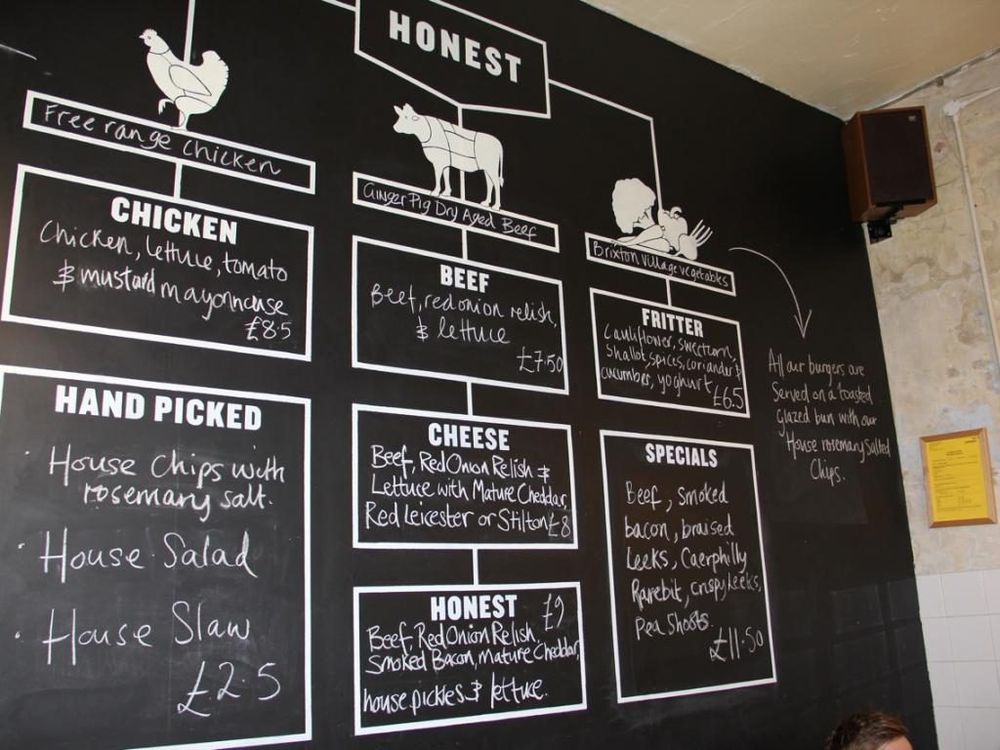 HONEST
Free range chicken
CHICKEN
Chicken, lettuce, tomato
& mustard mayonnaise
£8.5
HAND PICKED
· House Chips with
rosemary salt.
· House Salad
· House Slaw
£2.5
Ginger Pig Dry Aged Beef
BEEF
Beef, red onion relish,
& lettuce
£7.50
CHEESE
Beef, Red Onion Relish &
Lettuce with Mature Cheddar,
Red Leicester or Stilton £8
HONEST £9
Beef, Red Onion Relish,
Smoked Bacon, mature Cheddar,
house pickles & lettuce.
Brixton Village vegetables
FRITTER
Cauliflower, sweetcorn,
shallot, spices, coriander &
cucumber, yoghurt £6.5
SPECIALS
Beef, smoked
bacon, braised
Leeks, Caerphilly
Rarebit, crispy Leeks,
Pea Shoots.
£11.50
All our burgers are
Served on a toasted
glazed bun with our
House rosemary Salted
Chips.